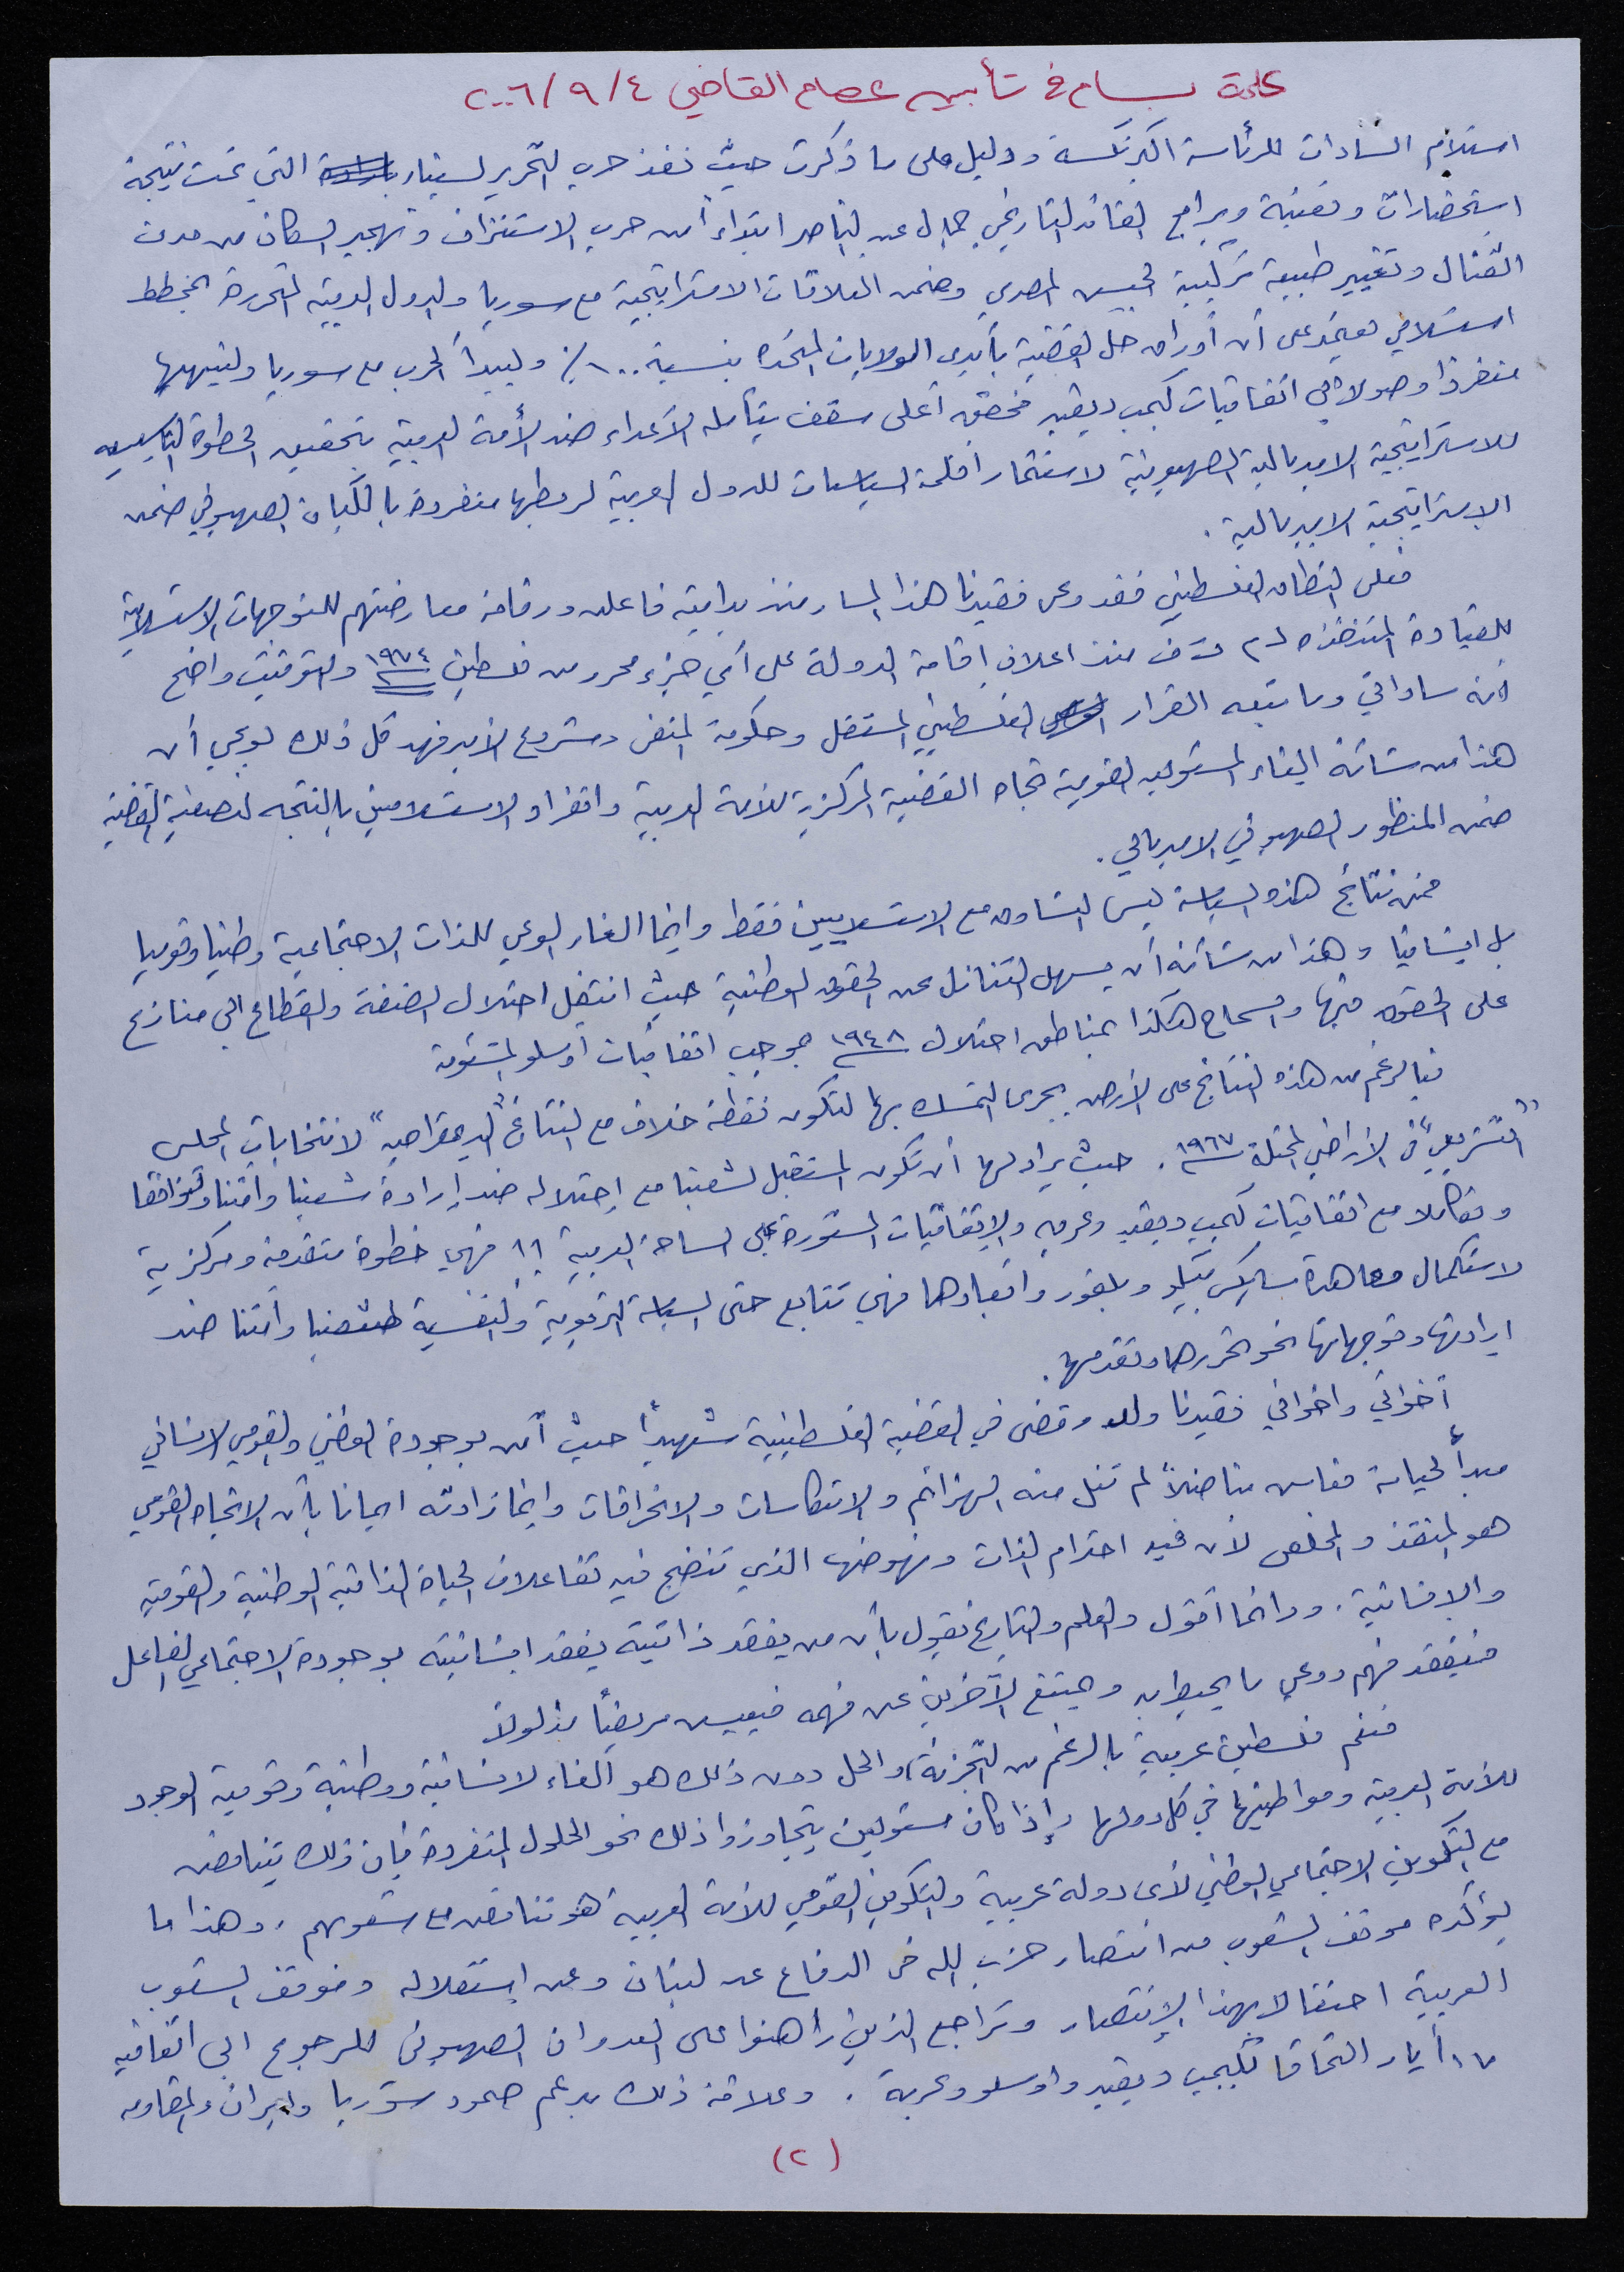 كلمة بسام في تأبين عصام القاضي ٤/٩/٢٠٠٦
استلام السادات للرئاسة اكبر نكسة ودليل على ما ذكرت حيث نفذ حرب التحرير لسيناء التي تمت نتيجة
استحضارات وتعبئة وبرامج القائد التاريخي جمال عبد الناصر ابتداءً من حرب الاستنزاف وتهجير السكان من مدن
القتال وتغيير طبيعة تركيبة الجيش المصري وضمن العلاقات الاستراتيجية مع سوريا والدول العربية المتحررة بمخطط
استسلامي يعتمد على أن أوراق حل القضية بأيدي الولايات المتحدة بنسبة ١٠٠٪ وليبدأ الحرب مع سوريا ولينهيها
منفردا وصولا الى اتفاقيات كمب ديفيد محققه أعلى سقف يتأمله الأعداء ضد الأمة العربية بتحقيق الخطوة التأسيسيه
للاستراتيجية الامبريالية الصهيونية لاستثمار أقلمة السياسات للدول العربية لربطها منفردة بالكيان الصهيوني ضمن
الاستراتيجية الامبريالية.
فعلى النطاق الفلسطيني فقد وعى فقيدنا هذا المسار منذ بدايته فاعلن ورفاقه معارضتهم للتوجهات الاستسلامية
للقيادة المتنفذه لـ م ت ف منذ اعلان اقامة الدولة على أي جزء محرر من فلسطين ١٩٧٤ والتوقيت واضح
أنه ساداتي وما تبعه القرار الفلسطيني المستقل وحكومة المنفى ومشروع الأمير فهد كل ذلك يوعي أن
هذا من شأنه الغاء المسئوليه القومية تجاه القضية المركزية للأمة العربية وانفراد الاستسلاميين بالنتيجه لتصفية القضية
ضمن المنظور الصهيوني الامبريالي.
فمن نتائج هذه السياسة ليس التساوق مع الاستسلاميين فقط وانما الغاء الوعي للذات الاجتماعية وطنيا وقوميا
بل انسانيا وهذا من شأنه أن يسهل التنازل عن الحقوق الوطنية حيث انتقل احتلال الضفة والقطاع الى متنازع
على الحقوق فيها والسماح هكذا بمناطق احتلال ١٩٤٨ بموجب اتفاقيات أوسلو المشئومة
فبالرغم من هذه النتائج على الأرض يجري التمسك بها لتكون نقطة خلاف مع النتائج "الديمقراطيه" لانتخابات المجلس
"التشريعي" في الأراضي المحتلة ١٩٦٧. حيث يراد لها أن تكون المستقبل لشعبنا مع احتلاله ضد إرادة شعبنا وأمتنا وتوافقا
وتكاملا مع اتفاقيات كمب ديفيد وعربه والاتفاقيات المستورة على الساحة العربية !! فهي خطوة متقدمة ومركزية
لاستكمال معاهدة سايكس بيكو وبلفور وأبعادها فهي تتابع حتى السياسة التربوية والنفسية لشعبنا وأمتنا ضد
ارادتها وتوجهاتها نحو تحررها وتقدمها.
أخواتي واخواني فقيدنا ولد وقضى في القضية الفلسطينية شهيداً حيث آمن بوجوده الوطني والقومي الانساني
مبدأ لحياته فعاش مناضلاً لم تنل منه الهزائم والانتكاسات والانحرافات وانما زادته ايمانا بأن الاتجاه القومي
هو المنقذ والمخلص لأن فيه احترام الذات ونهوضها الذي تنضج فيه تفاعلات الحياة الذاتية الوطنية والقومية
والانسانية. ودائما أقول والعلم والتاريخ يقول بأن من يفقد ذاتيته يفقد انسانيته بوجوده الاجتماعي الفاعل
فيفقد فهم ووعي ما يحيط به ويمتنع الآخرين عن فهمه فيعيش مريضاً مذلولا
فنعم فلسطين عربية بالرغم من التجزئة، والحل دون ذلك هو الغاء لانسانية ووطنية وقومية الوجود
للأمة العربية ومواطنيها في كل دولها وإذا كان مسئولين يتجاوزوا ذلك نحو الحلول المنفردة فإن ذلك يتناقض
مع التكوين الاجتماعي الوطني لأى دولة عربية والتكوين القومي للأمة العربية هو تناقض مع شعوبهم. وهذا ما
يؤكده موقف الشعوب من انتصار حزب الله في الدفاع عن لبنان وعن إستقلاله وموقف الشعوب
العربية احتفالا بهذا الإنتصار وتراجع الذين راهنوا على العدوان الصهيوني للرجوع الى اتفاقيه
١٧ أيار التحاقا بكمب ديفيد واوسلو وعربة. وعلاقة ذلك بدعم صمود سوريا وايران والمقاومه
(٢)